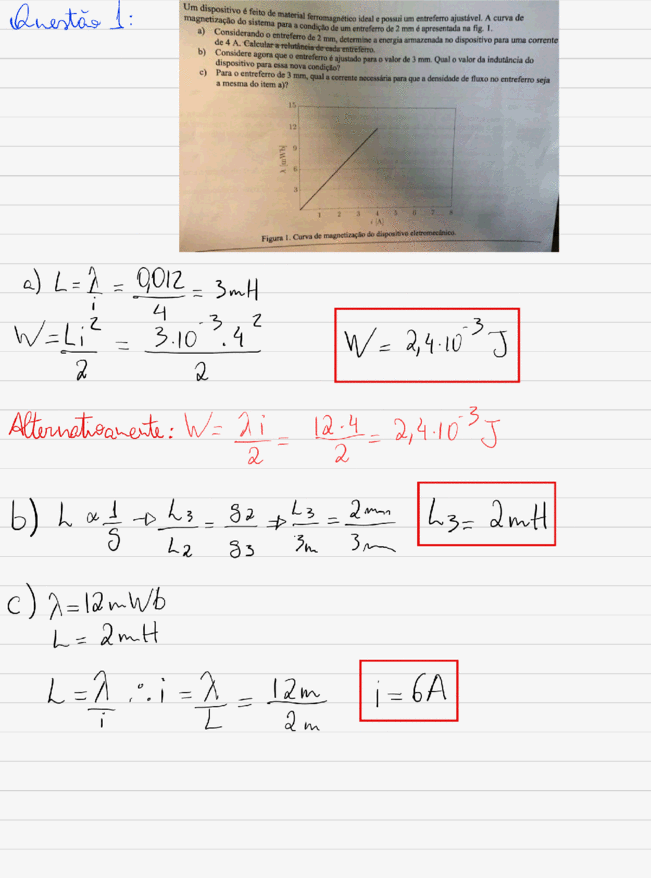 Questão 1:
Um dispositivo é feito de material ferromagnético ideal e possui um entreferro ajustável. A curva de
magnetização do sistema para a condição de um entreferro de 2 mm é apresentada na fig. 1.
a) Considerando o entreferro de 2 mm, determine a energia armazenada no dispositivo para uma corrente
de 4 A. Calcular a relutância de cada entreferro.
b) Considere agora que o entreferro é ajustado para o valor de 3 mm. Qual o valor da indutância do
dispositivo para essa nova condição?
c) Para o entreferro de 3 mm, qual a corrente necessária para que a densidade de fluxo no entreferro seja
a mesma do item a)?
15
12
9
6
3
λ [mWb]
1 2 3 4 5 6 7 8
i [A]
Figura 1. Curva de magnetização do dispositivo eletromecânico.
a) L = λ/i = 0,012/4 = 3mH
W = Li²/2 = 3·10⁻³·4²/2
W = 2,4·10⁻³ J
Alternativamente: W = λi/2 = 12·4/2 = 2,4·10⁻³ J
b) L ∝ 1/g → L3/L2 = g2/g3 → L3/3m = 2mm/3m
L3 = 2mH
c) λ = 12mWb
L = 2mH
L = λ/i ∴ i = λ/L = 12m/2m
i = 6A